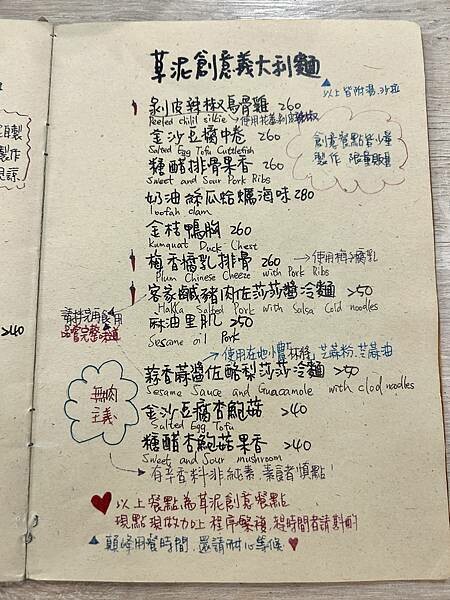 草泥創意義大利麵
▲以上皆附湯.沙拉
剝皮辣椒烏骨雞 260
Peeled chilil silkie
使用花蓮剝皮辣椒
金沙豆腐中卷 260
Salted Egg Tofu Cuttlefish
創意餐點皆少量
製作 限量販售
糖醋排骨果香 260
Sweet and Sour Pork Ribs
奶油絲瓜蛤蠣海味 280
loofah clam
金桔鴨胸 260
Kumquat Duck Chest
梅香腐乳排骨 260 →使用梅子腐乳
Plum Chinese Cheeze with Pork Ribs
客家鹹豬肉佐莎莎醬冷麵 >50
Hakka Salted Pork with Salsa Cold noodles
請拌勻食用
品嘗完整味道
麻油里肌 >50
Sesame oil Pork
使用在地小農 芝麻粉.芝麻油
蒜香蔴醬佐酪梨莎莎冷麵 >50
Sesame Sauce and Guacamole with clod noodles
無肉
主義
金沙豆腐杏鮑菇 >40
Salted Egg Tofu
糖醋杏鮑菇果香 >40
Sweet and Sour mushroom
有辛香料非純素.素食者慎點!
以上餐點為草泥創意餐點
現點現做加上程序繁複,趕時間者請斟酌
▲顛峰用餐時間.還請耐心等候
>40